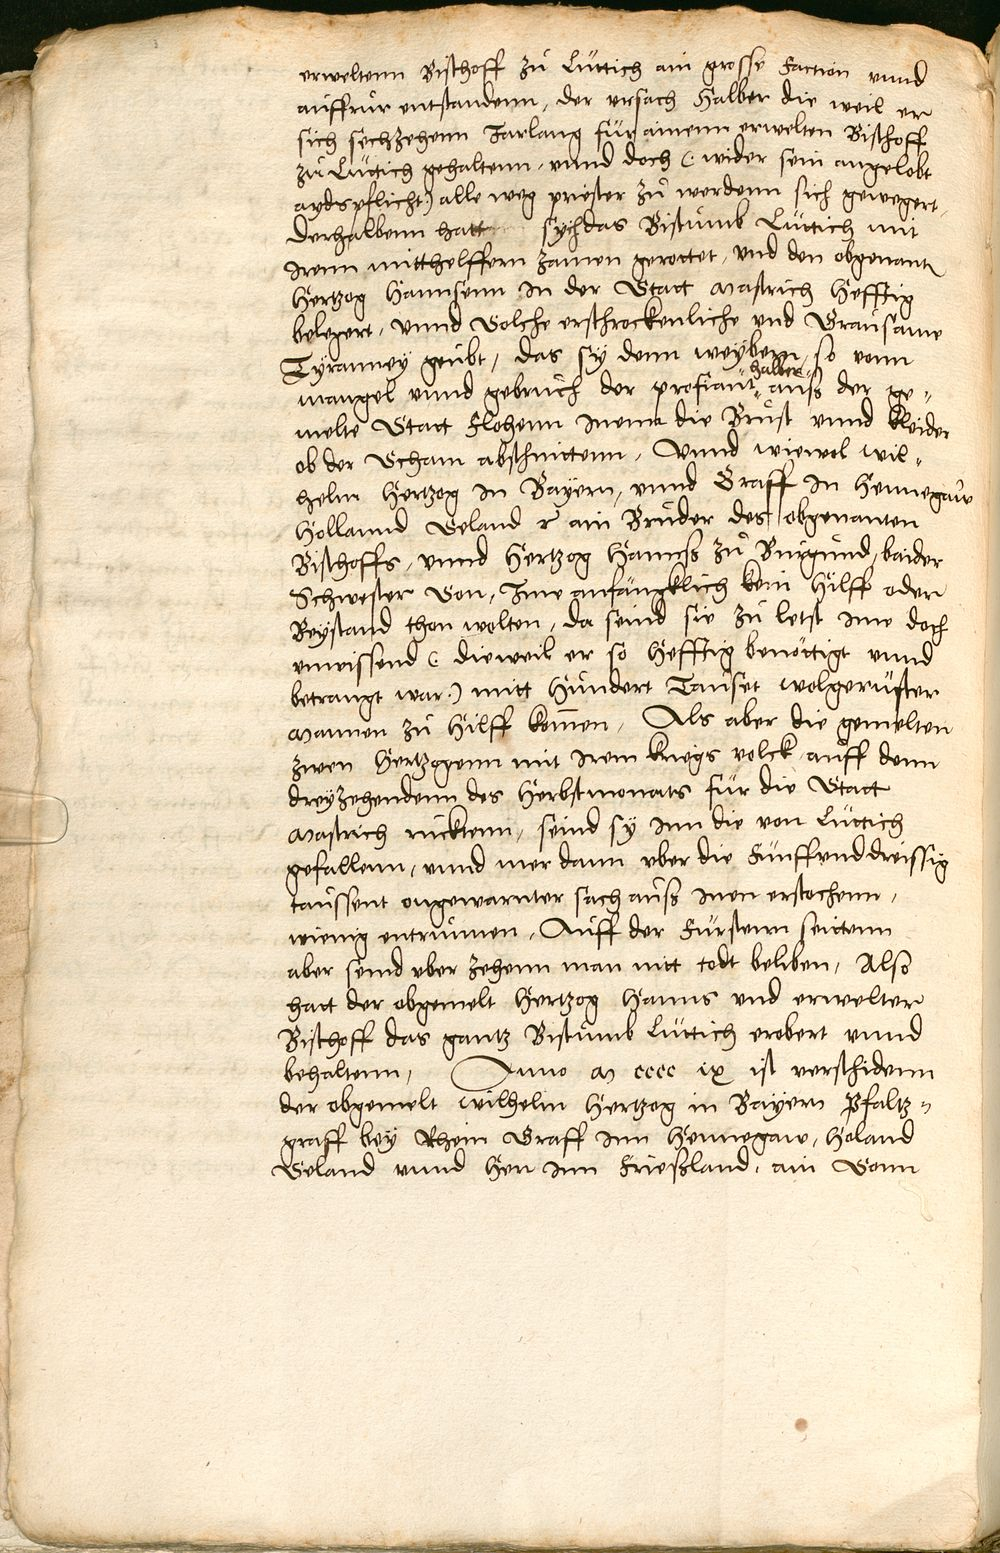 erweltenn Bischoff zů Lüttich ain grosse Faction vnnd
auffrůr entstandenn, der vrsach halber die weil er
sich sechzehenn Jarlang für ainenn erwelten Bischoff
zů Lüttich gehaltenn, vnnd doch (: wider sein angelobt
aydspflicht:) alle weg priester zů werdenn sich gewegert,
Derhalbenn hatt sych das Bistumb Lüttich mit
Irenn mitthelffern zamen gerottet, vnd den obgenantn
Hertzog Hannsenn In der Statt Mastrich hefftig
belegert, vnnd Solche erschrockenliche vnd Grausame
Tyranney geübt, das sy denn weybern, so vonn
mangel vnnd gebruch der profiant halber auss der ge-
melte Statt Flohenn Inenn die Brüst vnnd kleider
ob der Scham abschnittenn, Vnnd wiewol wil-
helm Hertzog In Bayern, vnnd Graff In Hennegaüw
Hollannd Seland &c ain Brůder des obgenanten
Bischoffs, vnnd Hertzog Hannss zů Burgund, baider
Schwester Son, Ime anfäncklich kein hilff oder
Beystand thon wolten, da seind sie zů letst Ime doch
vnwissend (: dieweil er so hefftig benöttigt vnnd
betrangt war:) mitt hundert Tauset wolgerüster
Mannen zů hilff komen, Als aber die gemelten
zwen Hertzogenn mit Irem kriegs volck auff denn
dreyzehendenn des Herbstmonats für die Statt
Mastrich rucktenn, seind sy Inn die von Lüttich
gefallenn, vnnd mer dann vber die Fünffvnddreissig
taussent ongewarnter sach auss Inen erstochenn,
wienig entrunnen, Auff der Fürstenn seittenn
aber seind vber zehenn man nitt todt beliben, Also
hatt der obgemelt Hertzog Hanns vnd erwelter
Bischoff das gantz Bistumb Lüttich erobert vnnd
behaltenn, Anno M cccc ix ist verschidenn
der obgemelt Wilhelm Hertzog in Bayern Pfaltz-
graff bey Rhein Graff Inn Hennegaw, Holand
Seland vnnd Herr Inn Friessland, ain Sonn